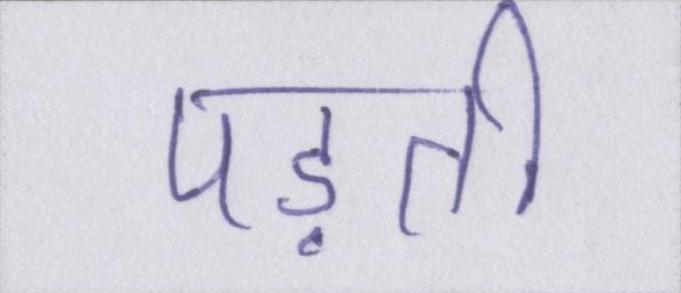 पड़ती